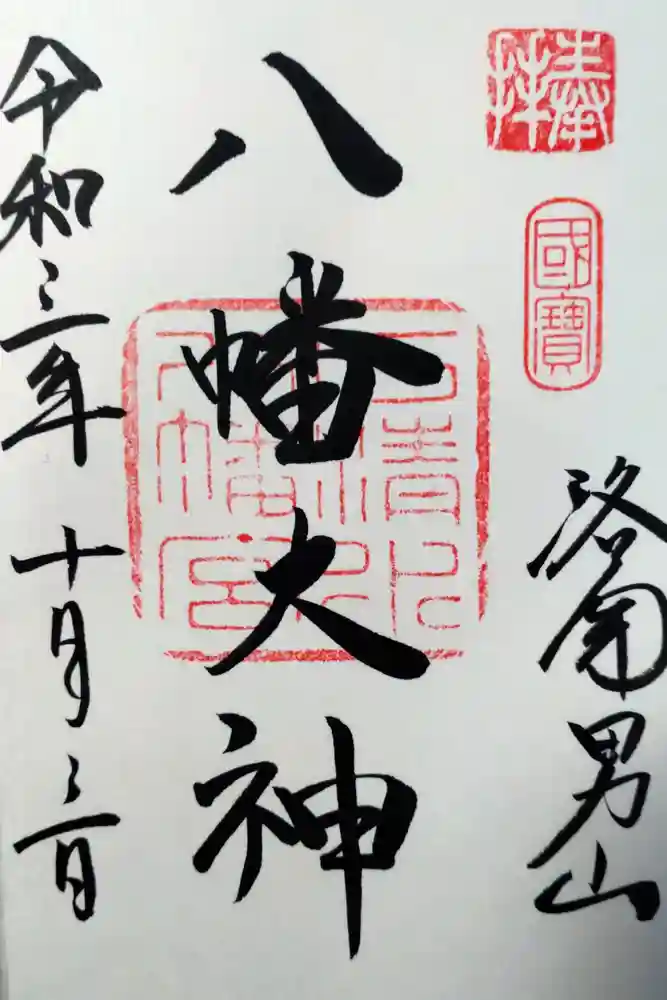 奉拝
國寶
洛南男山
八幡大神
八幡宮
令和三年十月三日